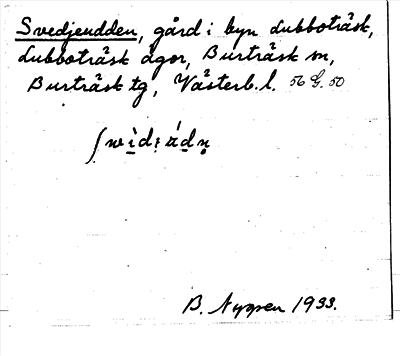 Svedjeudden, gård i byn Lubboträsk,
Lubboträsk ägor, Burträsk sn,
Burträsk tg, Västerb. l. 56 G. 50
B. Nygren 1933.